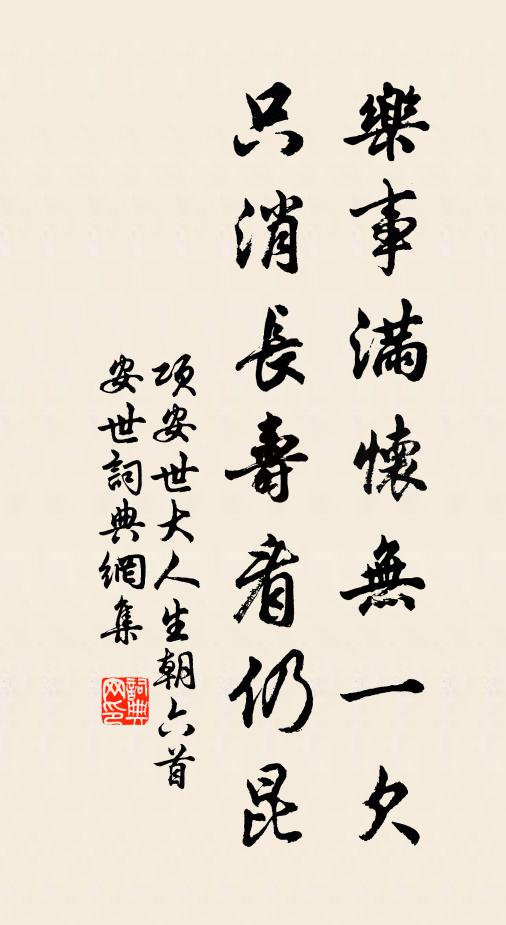 樂事滿懷無一欠
只消長壽看仍昆
項安世大人生朝六首
安世詞典網集
詞典
网印